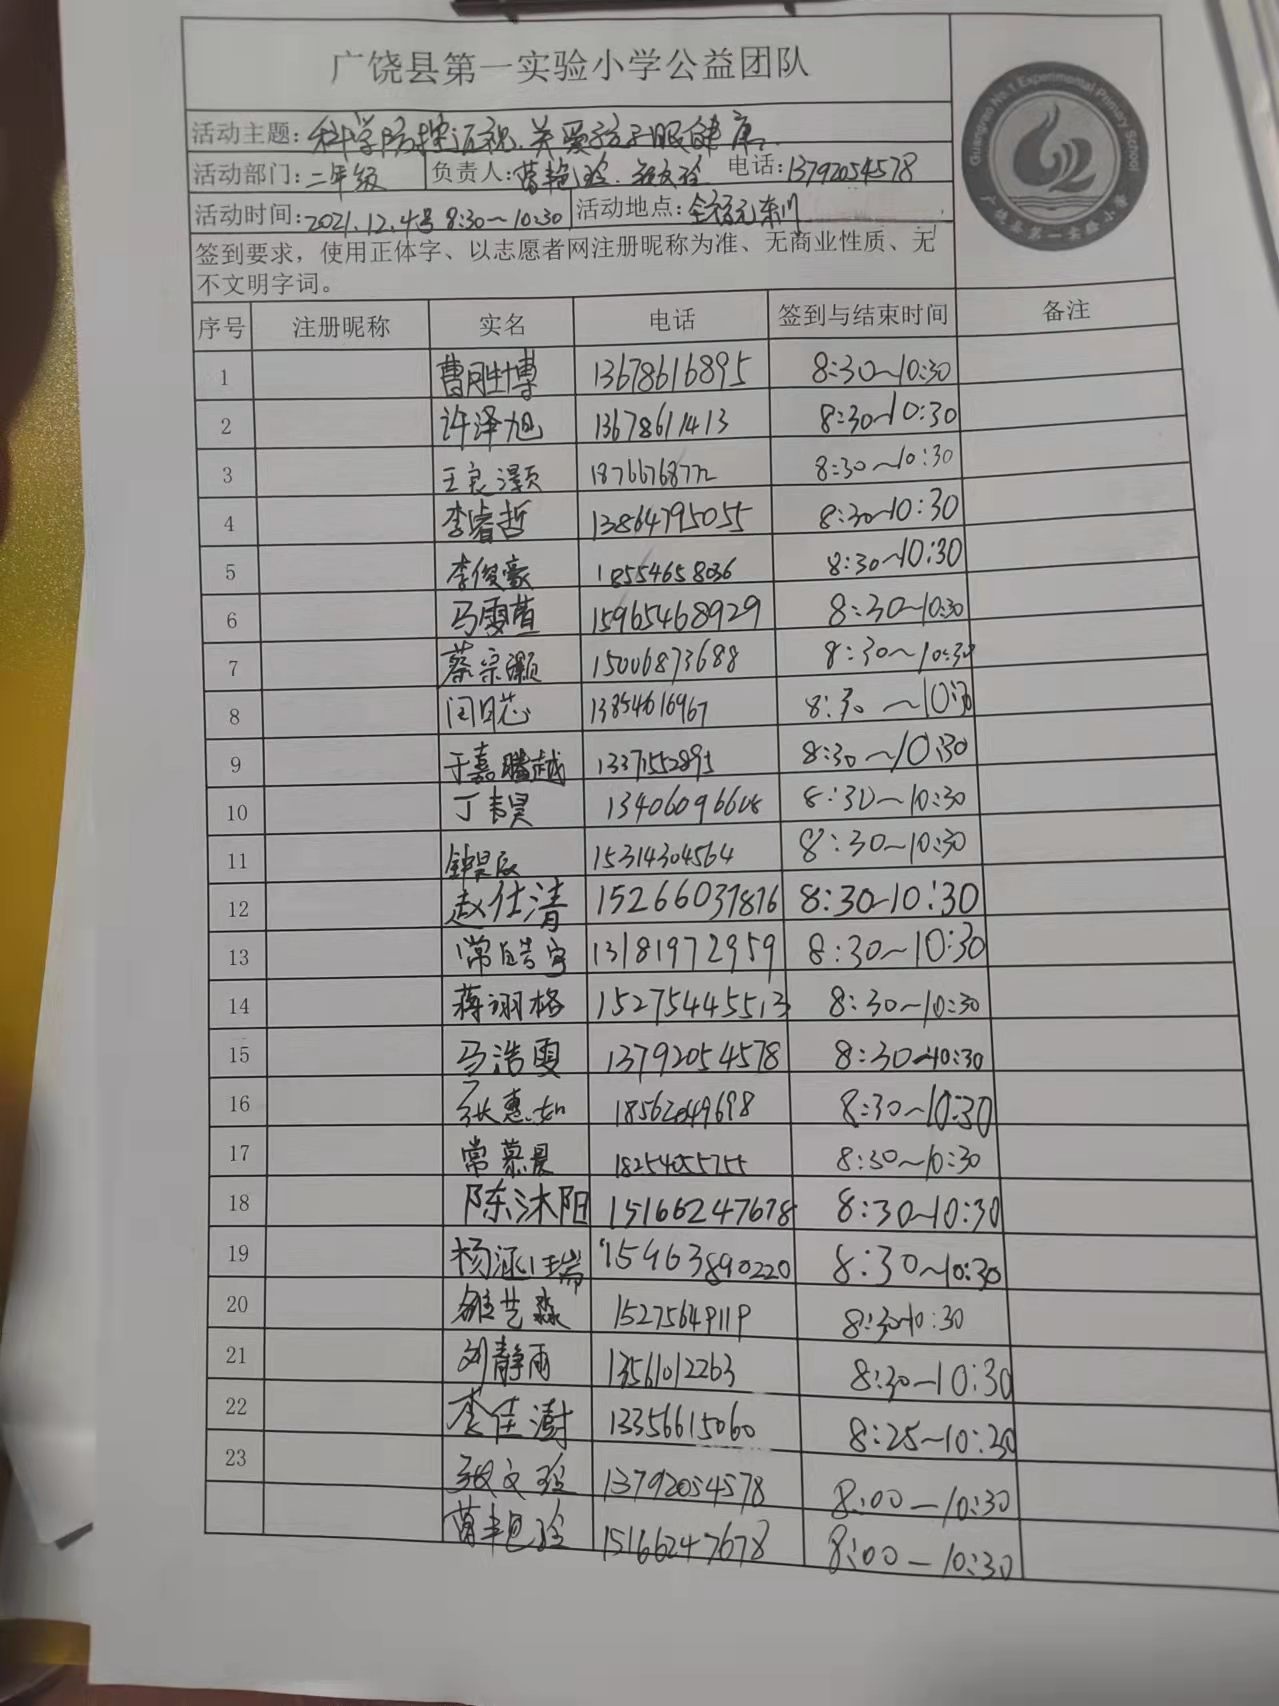 广饶县第一实验小学公益团队
Guangrao No.1 Experimental Primary School
广饶县第一实验小学
活动主题:科学防控近视.关爱孩子眼健康.
活动部门:二年级 负责人:曹艳玲.张文玲 电话:13792054578
活动时间:2021.12.4号 8:30~10:30 活动地点:全福元东川
签到要求，使用正体字、以志愿者网注册昵称为准、无商业性质、无
不文明字词。
序号 注册昵称 实名 电话 签到与结束时间 备注
1 曹胜博 13678616895 8:30~10:30
2 许泽旭 13678611413 8:30~10:30
3 王良灏 18766768772 8:30~10:30
4 李睿哲 13864795055 8:30~10:30
5 李俊豪 18554658036 8:30~10:30
6 马雯萱 15965468929 8:30~10:30
7 蔡宗灏 15006873688 8:30~10:30
8 闫日芯 13854616967 8:30~10:30
9 于嘉腾越 13371552895 8:30~10:30
10 丁昊 13406096608 8:30~10:30
11 钟昊辰 15314304564 8:30~10:30
12 赵仕清 15266037876 8:30~10:30
13 常皓宇 13181972959 8:30~10:30
14 蒋翊格 15275445513 8:30~10:30
15 马浩雯 13792054578 8:30~10:30
16 张惠如 18562049698 8:30~10:30
17 常慕晨 18254055755 8:30~10:30
18 陈沐阳 15166247678 8:30~10:30
19 杨涵瑞 15963890220 8:30~10:30
20 艺淼 15275649119 8:30~10:30
21 刘静雨 13561012263 8:30~10:30
22 李佳澍 13356615060 8:25~10:30
23 张文玲 13792054578 8:00—10:30
曹艳玲 15166247678 8:00—10:30